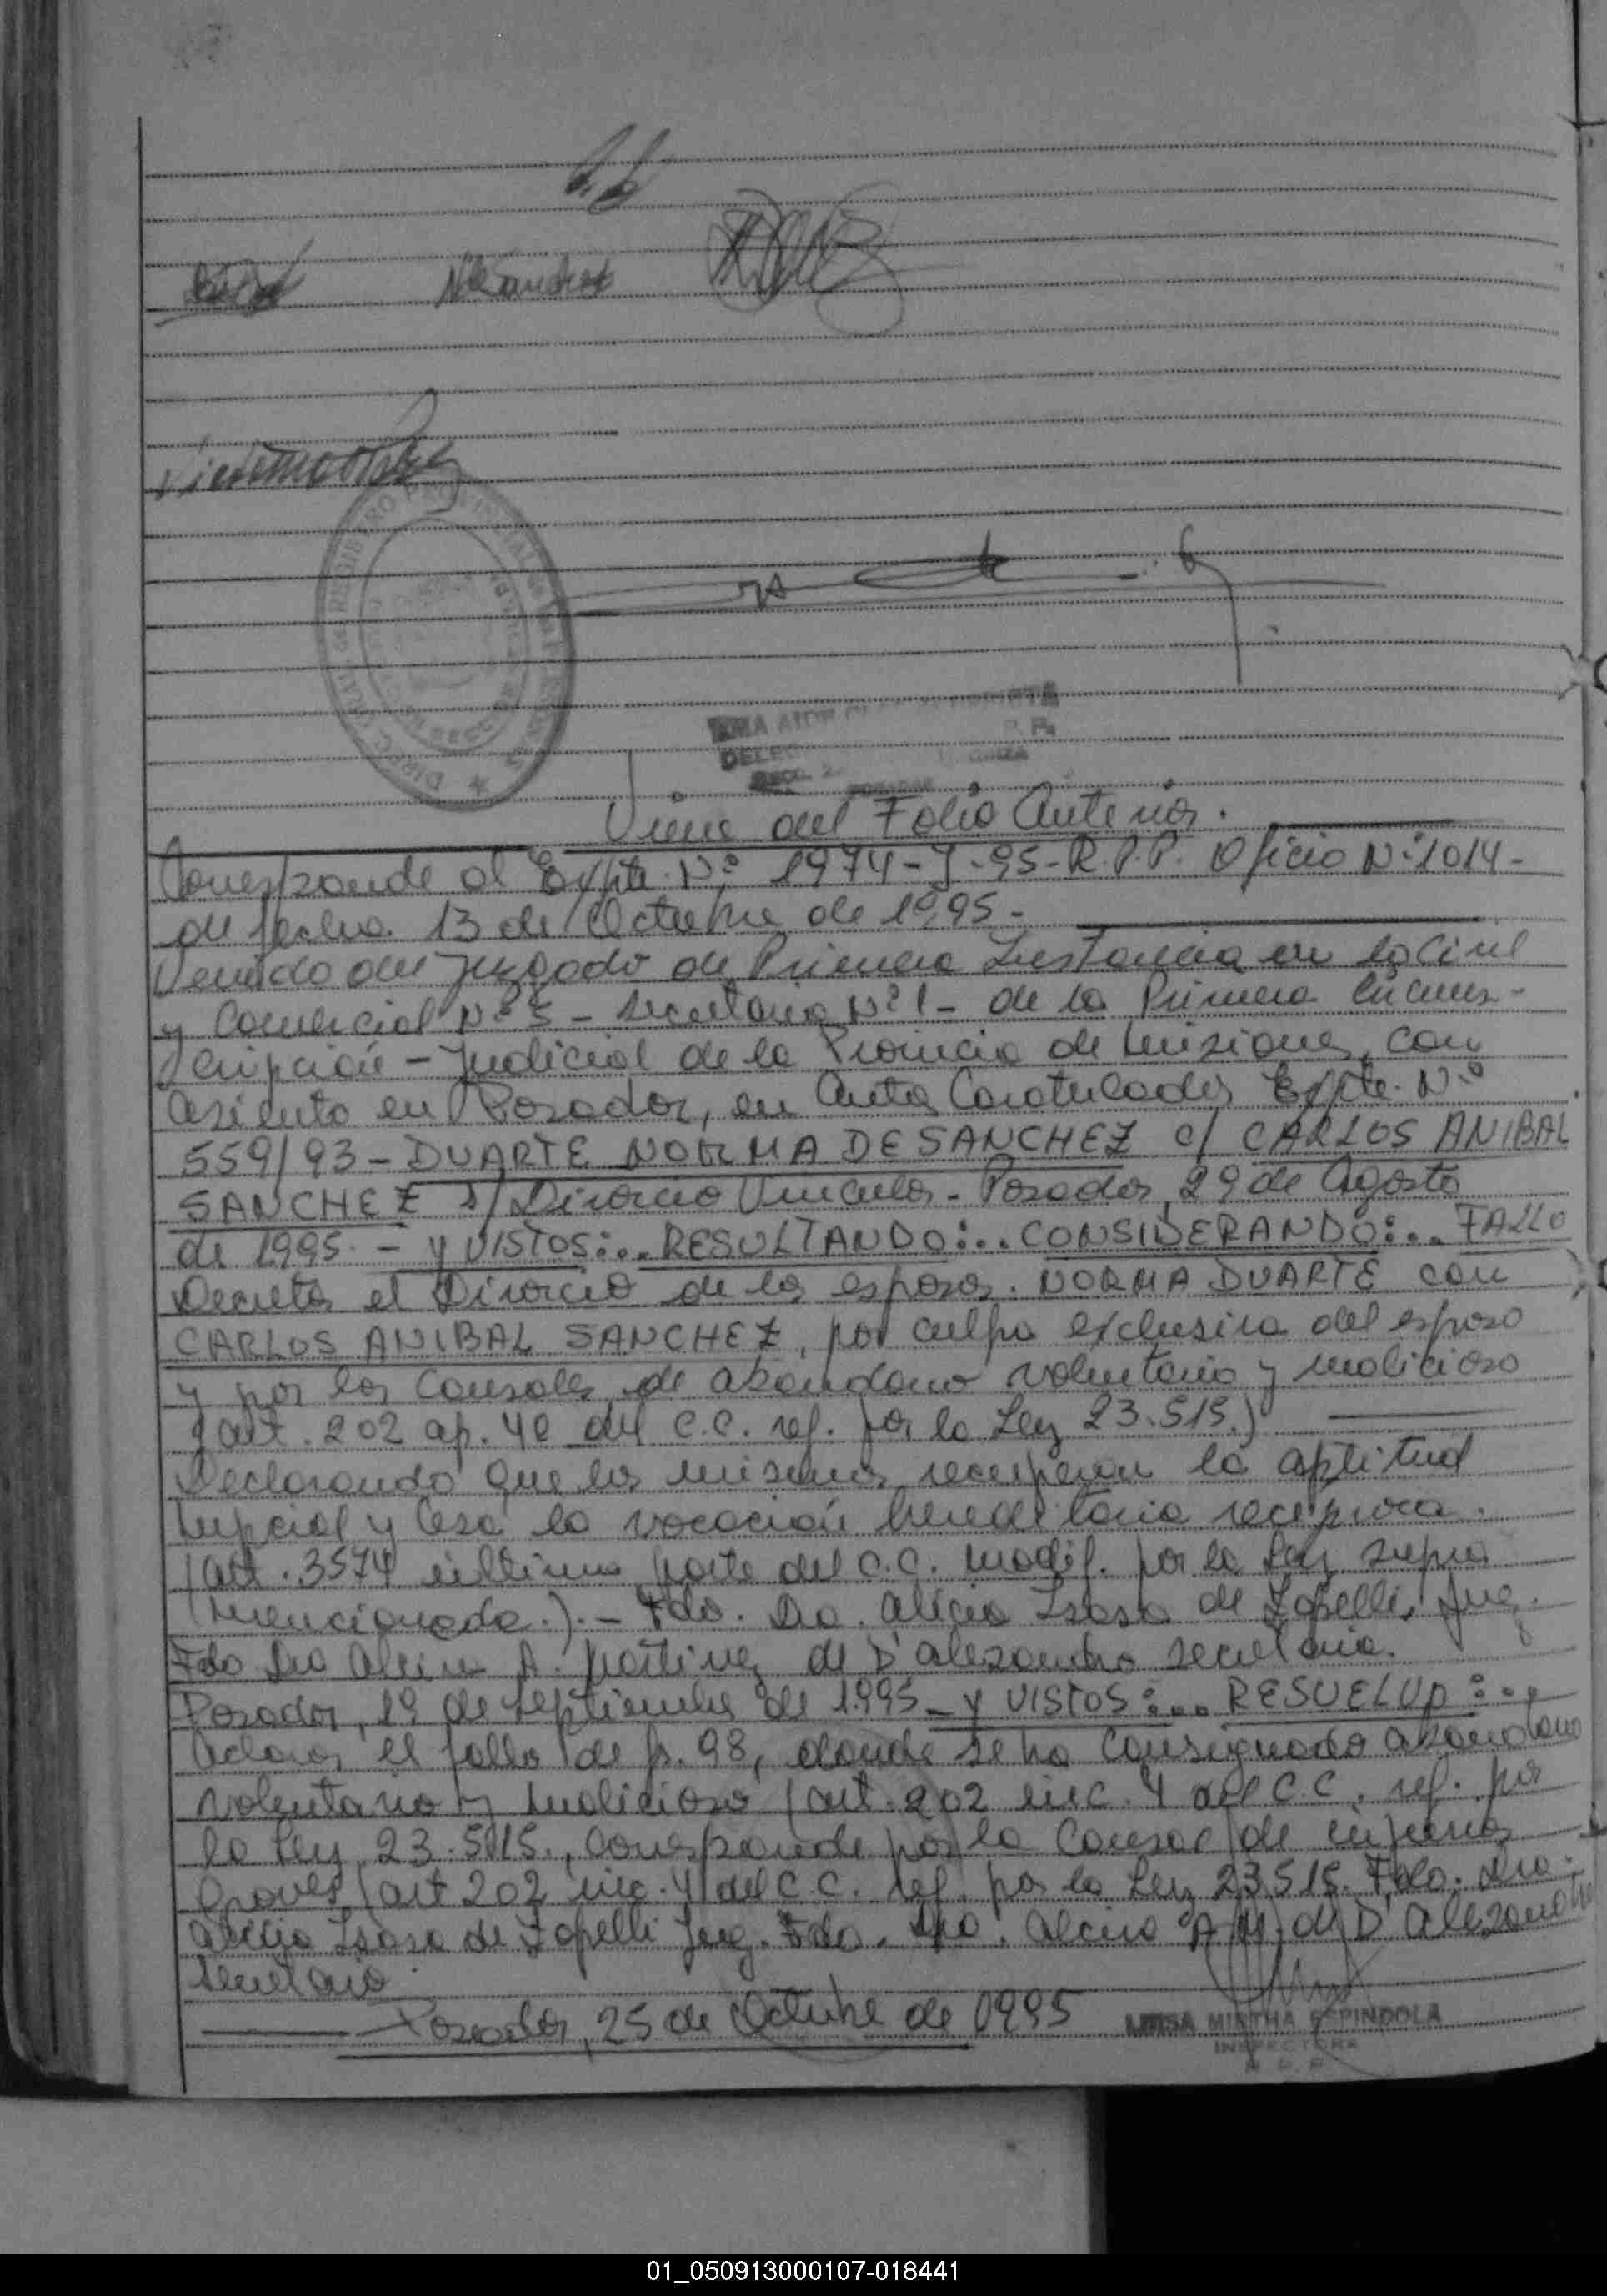 Viene del Folio Anterior.
Corresponde al Expte. Nº 1974-J-95-R.P.P. Oficio Nº 1014-
de fecha 13 de Octubre de 1995-
Venido del Juzgado de Primera Instancia en lo Civil
y Comercial Nº 5 - Secretaria Nº 1- de la Primera Circuns-
cripción - Judicial de la Provincia de Misiones, con
asiento en Posadas, en Autos Caratulados Expte. Nº
559/93- DUARTE NORMA DE SANCHEZ c/ CARLOS ANIBAL
SANCHEZ s/ Divorcio Vincular - Posadas, 29 de Agosto
de 1995. - y VISTOS:.. RESULTANDO:.. CONSIDERANDO:.. FALLO
Decretar el Divorcio de los esposos. NORMA DUARTE con
CARLOS ANIBAL SANCHEZ, por culpa exclusiva del esposo
y por las Causales de abandono voluntario y malicioso
(art. 202 ap. 4º del C.C. ref. por la Ley 23.515.)
Declarando que los mismos recuperan la aptitud
nupcial y cesa la vocación hereditaria recíproca.
(art. 3574 última parte del C.C. modif. por la Ley supra
mencionada.).- Fdo. Dra. Alicia de Zopelli, Juez.
Fdo Dra A. de D'Alezandro secretaria.
Posadas, 19 de septiembre de 1995 - y VISTOS:... RESUELVO:...
Aclarar el fallo de fs. 98, donde se ha consignado abandono
voluntario y malicioso (art. 202 inc. 4 del C.C. ref. por
la Ley 23.515., Corresponde por la Causal de injurias
Graves (art 202 inc. 4 del C.C. ref. por la Ley 23515. Fdo. Dra.
Alicia de Zopelli Juez. Fdo. Dra. A.M. de D'Alezandro
secretaria.
Posadas, 25 de Octubre de 1995
LUISA MIRTHA ESPINDOLA
INSPECTORA
01_050913000107-018441